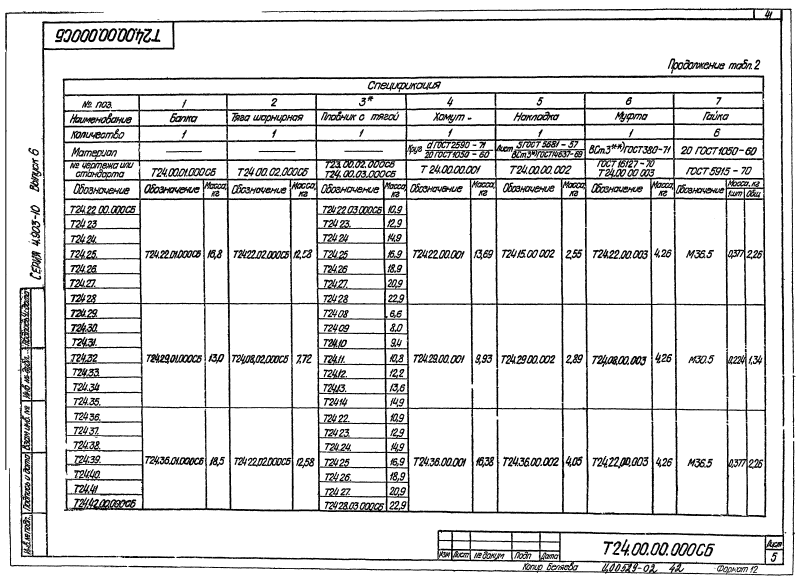 41
Т24.00.00.000СБ
Продолжение табл. 2
Серия 4.903-10 Выпуск 6
Спецификация
№ поз. 1 2 3* 4 5 6 7
Наименование Балка Тяга шарнирная Плавник с тягой Хомут - Накладка Муфта Гайка
Количество 1 1 1 1 1 1 6
Материал Круг d ГОСТ 2590-71 / 20 ГОСТ 1050-60 Лист 5 ГОСТ 5681-57 / ВСт.3**) ГОСТ 14637-69 ВСт3**) ГОСТ 380-71 20 ГОСТ 1050-60
№ чертежа или стандарта Т24.00.01.000СБ Т24.00.02.000СБ Т23.00.02.000СБ Т24.00.03.000СБ Т24.00.00.001 Т24.00.00.002 ГОСТ 16127-70 Т24.00.00.003 ГОСТ 5915-70
Обозначение Обозначение Масса, кг Обозначение Масса, кг Обозначение Масса, кг Обозначение Масса, кг Обозначение Масса, кг Обозначение Масса, кг Обозначение Масса, кг 1шт. Общ.
Т24.22.00.000СБ Т24.22.03.000СБ 10,9
Т24.23 Т24.23. 12,9
Т24.24. Т24.24 14,9
Т24.25. Т24.22.01.000СБ 16,8 Т24.22.02.000СБ 12,58 Т24.25 16,9 Т24.22.00.001 13,69 Т24.15.00.002 2,55 Т24.22.00.003 4,26 М36.5 0,377 2,26
Т24.26. Т24.26 18,9
Т24.27. Т24.27. 20,9
Т24.28 Т24.28 22,9
Т24.29. Т24.08 6,6
Т24.30. Т24.09 8,0
Т24.31. Т24.10 9,4
Т24.32 Т24.29.01.000СБ 13,0 Т24.08.02.000СБ 7,72 Т24.11. 10,8 Т24.29.00.001 9,93 Т24.29.00.002 2,89 Т24.08.00.003 4,26 М30.5 0,224 1,34
Т24.33. Т24.12. 12,2
Т24.34 Т24.13. 13,6
Т24.35. Т24.14 14,9
Т24.36. Т24.22. 10,9
Т24.37. Т24.23. 12,9
Т24.38. Т24.24. 14,9
Т24.39. Т24.36.01.000СБ 18,5 Т24.22.02.000СБ 12,58 Т24.25 16,9 Т24.36.00.001 16,38 Т24.36.00.002 4,05 Т24.22.00.003 4,26 М36.5 0,377 2,26
Т24.40. Т24.26. 18,9
Т24.41 Т24.27. 20,9
Т24.42.00.000СБ Т24.28.03.000СБ 22,9
Инв.№ подл. Подпись и дата Взам.инв.№ Инв.№ дубл. Подпись и дата
Изм Лист № докум Подп Дата
Т24.00.00.000СБ
Лист
5
Копир Беляева Ц00529-02 42 Формат 12